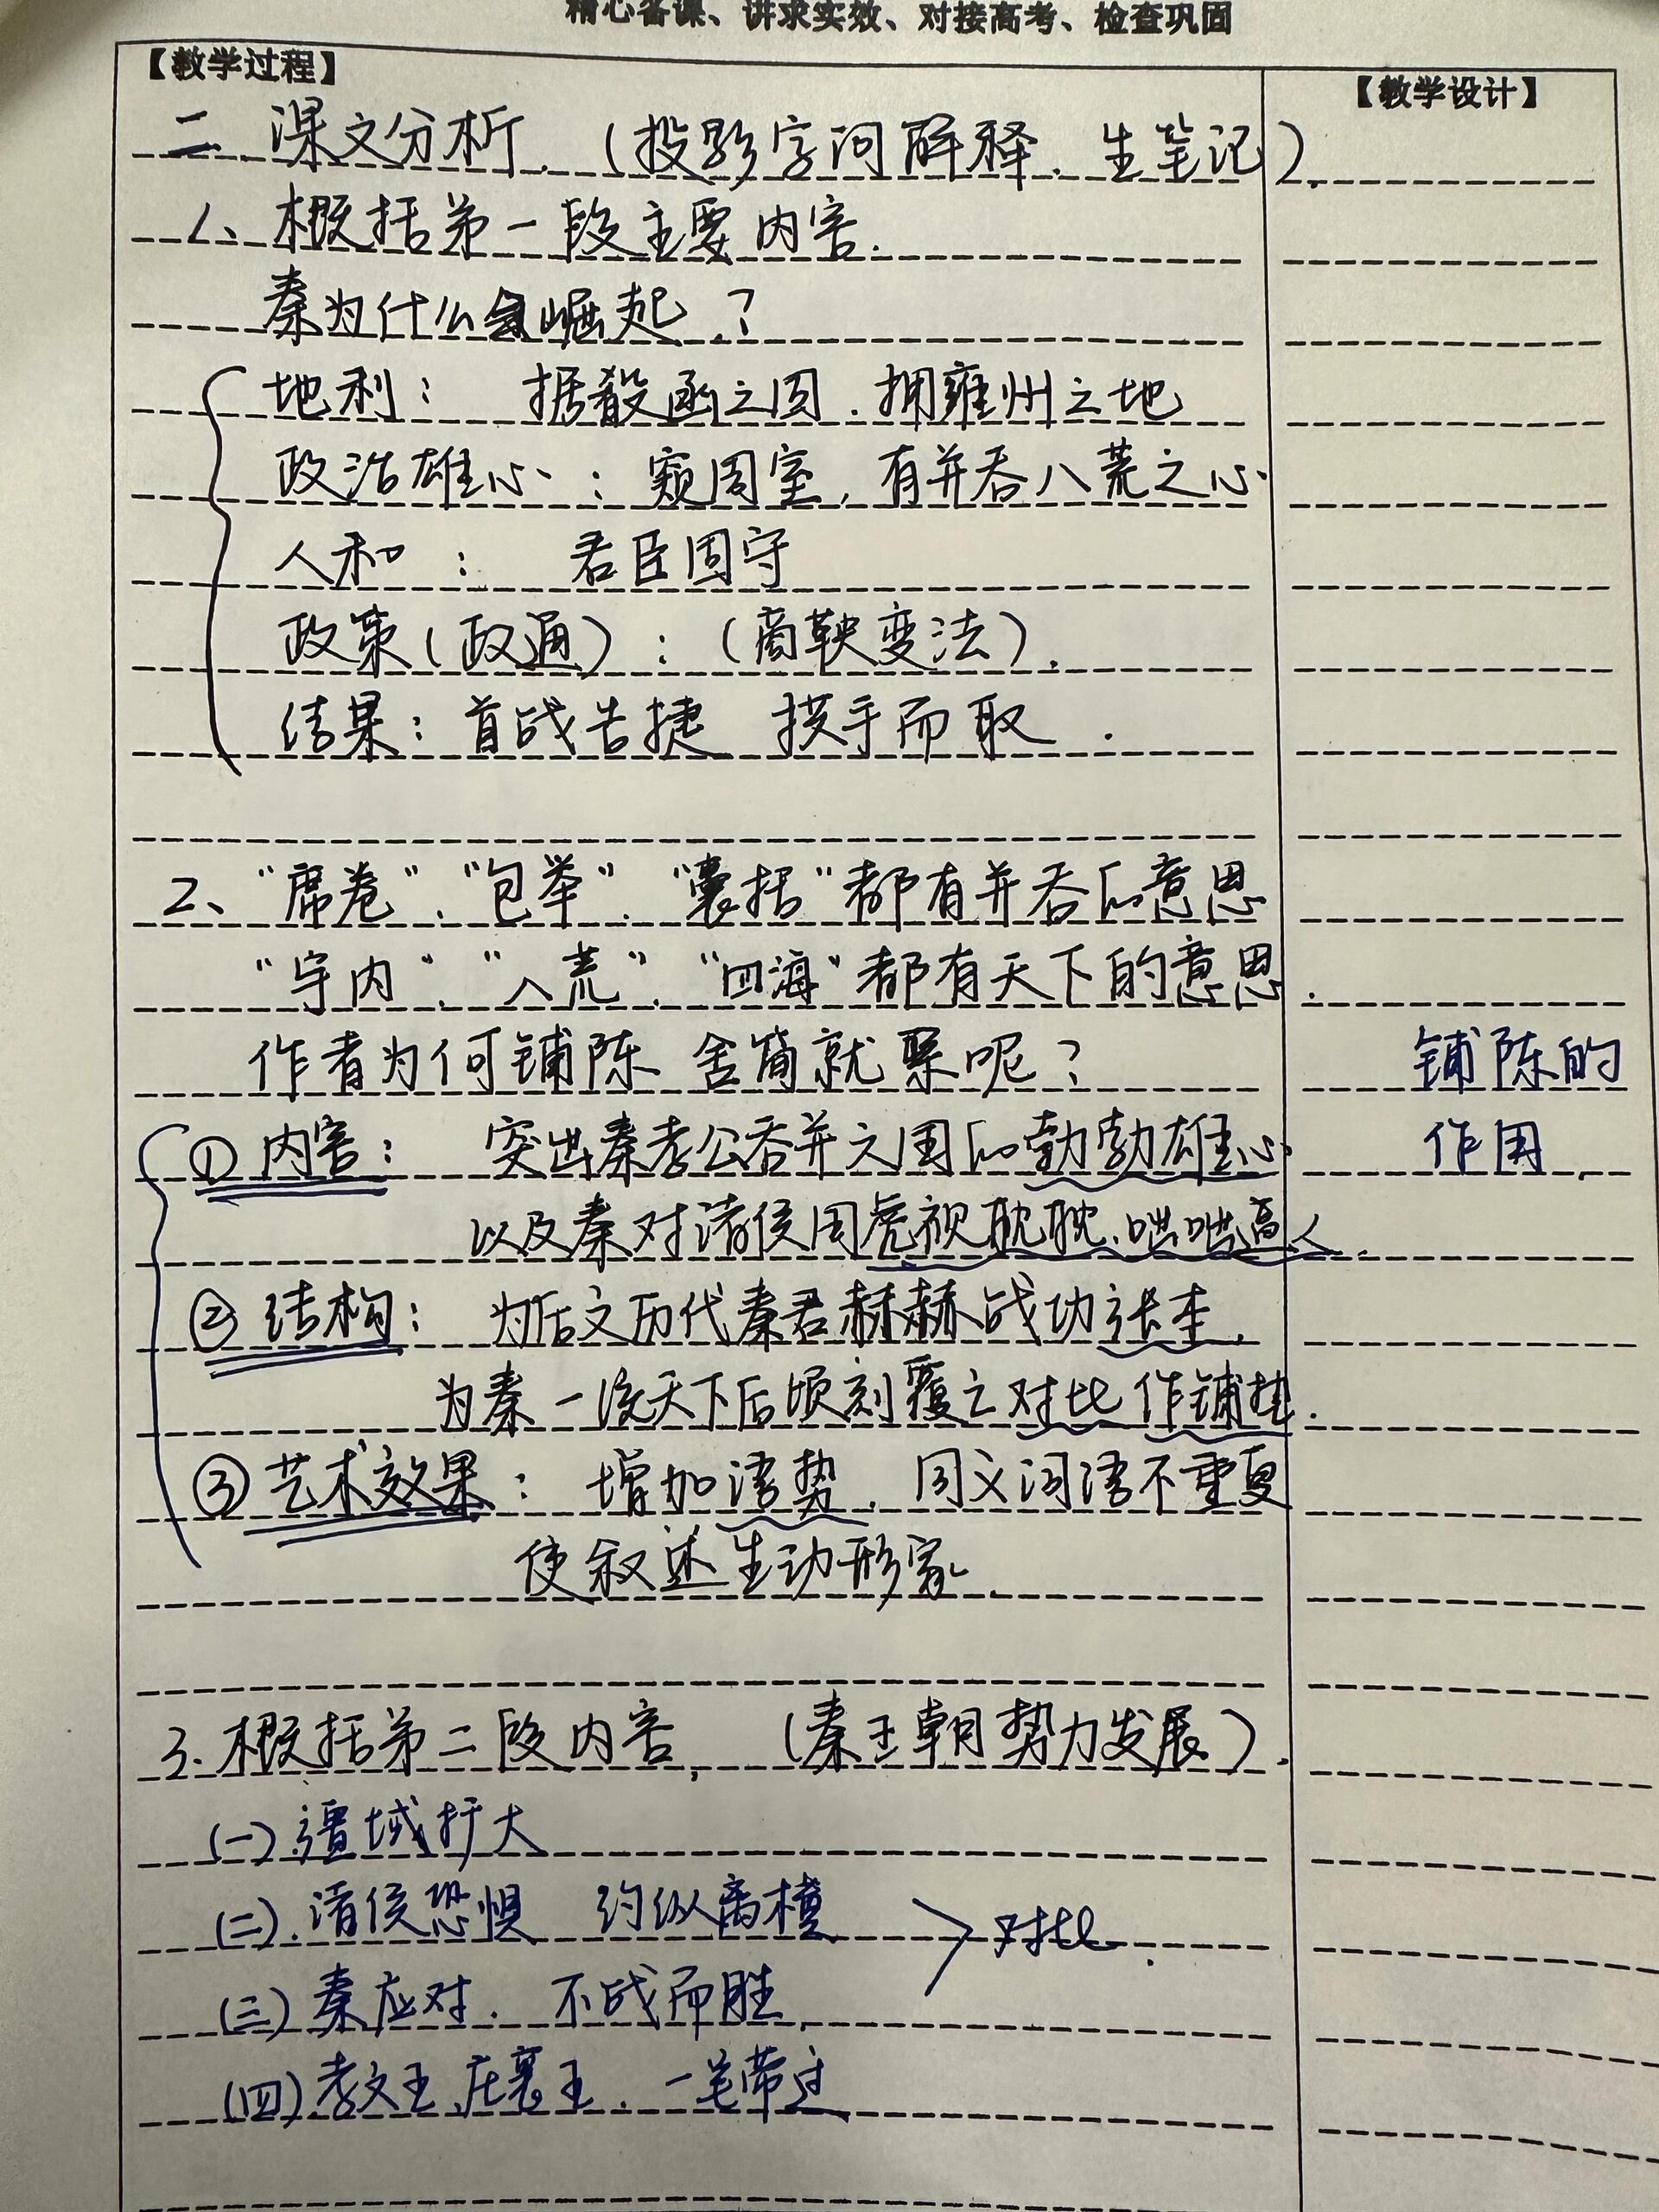 精心备课、讲求实效、对接高考、检查巩固
【教学过程】
【教学设计】
二 课文分析.（投影字词解释.生笔记）.
1、概括第一段主要内容.
秦为什么会崛起.？
地利： 据殽函之固.拥雍州之地
政治雄心：窥周室，有并吞八荒之心
人和： 君臣固守
政策（政通）：（商鞅变法）.
结果：首战告捷 拱手而取.
2、“席卷”、“包举”、“囊括”都有并吞的意思
“宇内”、“八荒”、“四海”都有天下的意思.
作者为何铺陈.舍简就繁呢？
铺陈的
作用.
①内容： 突出秦孝公吞并六国的勃勃雄心
以及秦对诸侯国虎视眈眈.咄咄逼人.
②结构： 为后文历代秦君赫赫战功张本.
为秦一统天下后顷刻覆亡对比作铺垫.
③艺术效果： 增加语势.同义词语不重复
使叙述生动形象.
3.概括第二段内容.（秦王朝势力发展）.
(一).疆域扩大
(二).诸侯恐惧 约纵离横
对比.
(三)秦应对. 不战而胜.
(四)孝文王.庄襄王.一笔带过